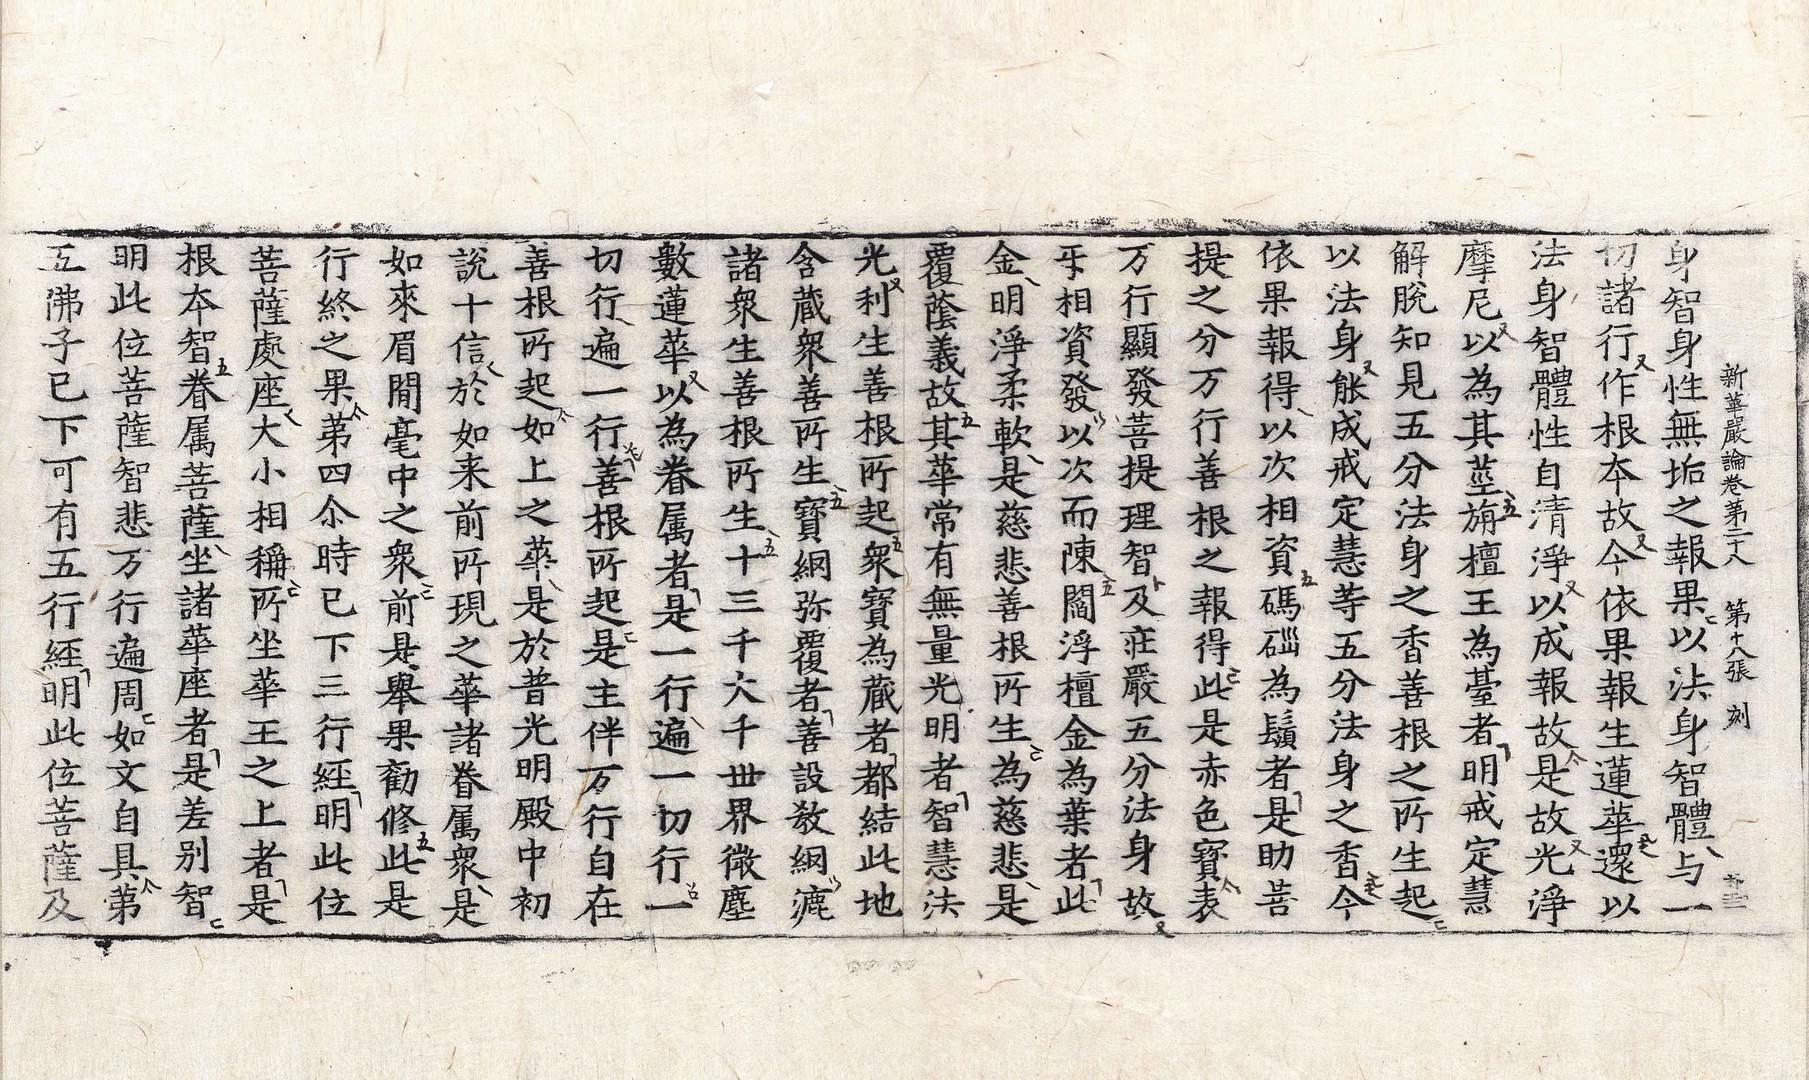 新華嚴論卷第二十八　第十八張　刻
身智身性無垢之報果以法身智體与一
切諸行作根本故今依果報生蓮華還以
法身智體性自清淨以成報故是故光淨
摩尼以為其莖旃檀王為臺者明戒定慧
解脫知見五分法身之香善根之所生起
以法身能成戒定慧等五分法身之香今
依果報得以次相資碼碯為鬚者是助菩
提之分万行善根之報得此是赤色寶表
万行顯發菩提理智及莊嚴五分法身故
乎相資發以次而陳閻浮檀金為葉者此
金明淨柔軟是慈悲善根所生為慈悲是
覆蔭義故其華常有無量光明者智慧法
光利生善根所起衆寶為藏者都結此地
含藏衆善所生寶網弥覆者善設教網漉
諸衆生善根所生十三千大千世界微塵
數蓮華以為眷属者是一行遍一切行一
切行遍一行善根所起是主伴万行自在
善根所起如上之華是於普光明殿中初
說十信於如来前所現之華諸眷属衆是
如來眉間毫中之衆前是舉果勸修此是
行終之果第四尒時已下三行經明此位
菩薩處座大小相稱所坐華王之上者是
根本智眷属菩薩坐諸華座者是差別智
明此位菩薩智悲万行遍周如文自具第
五佛子已下可有五行經明此位菩薩及